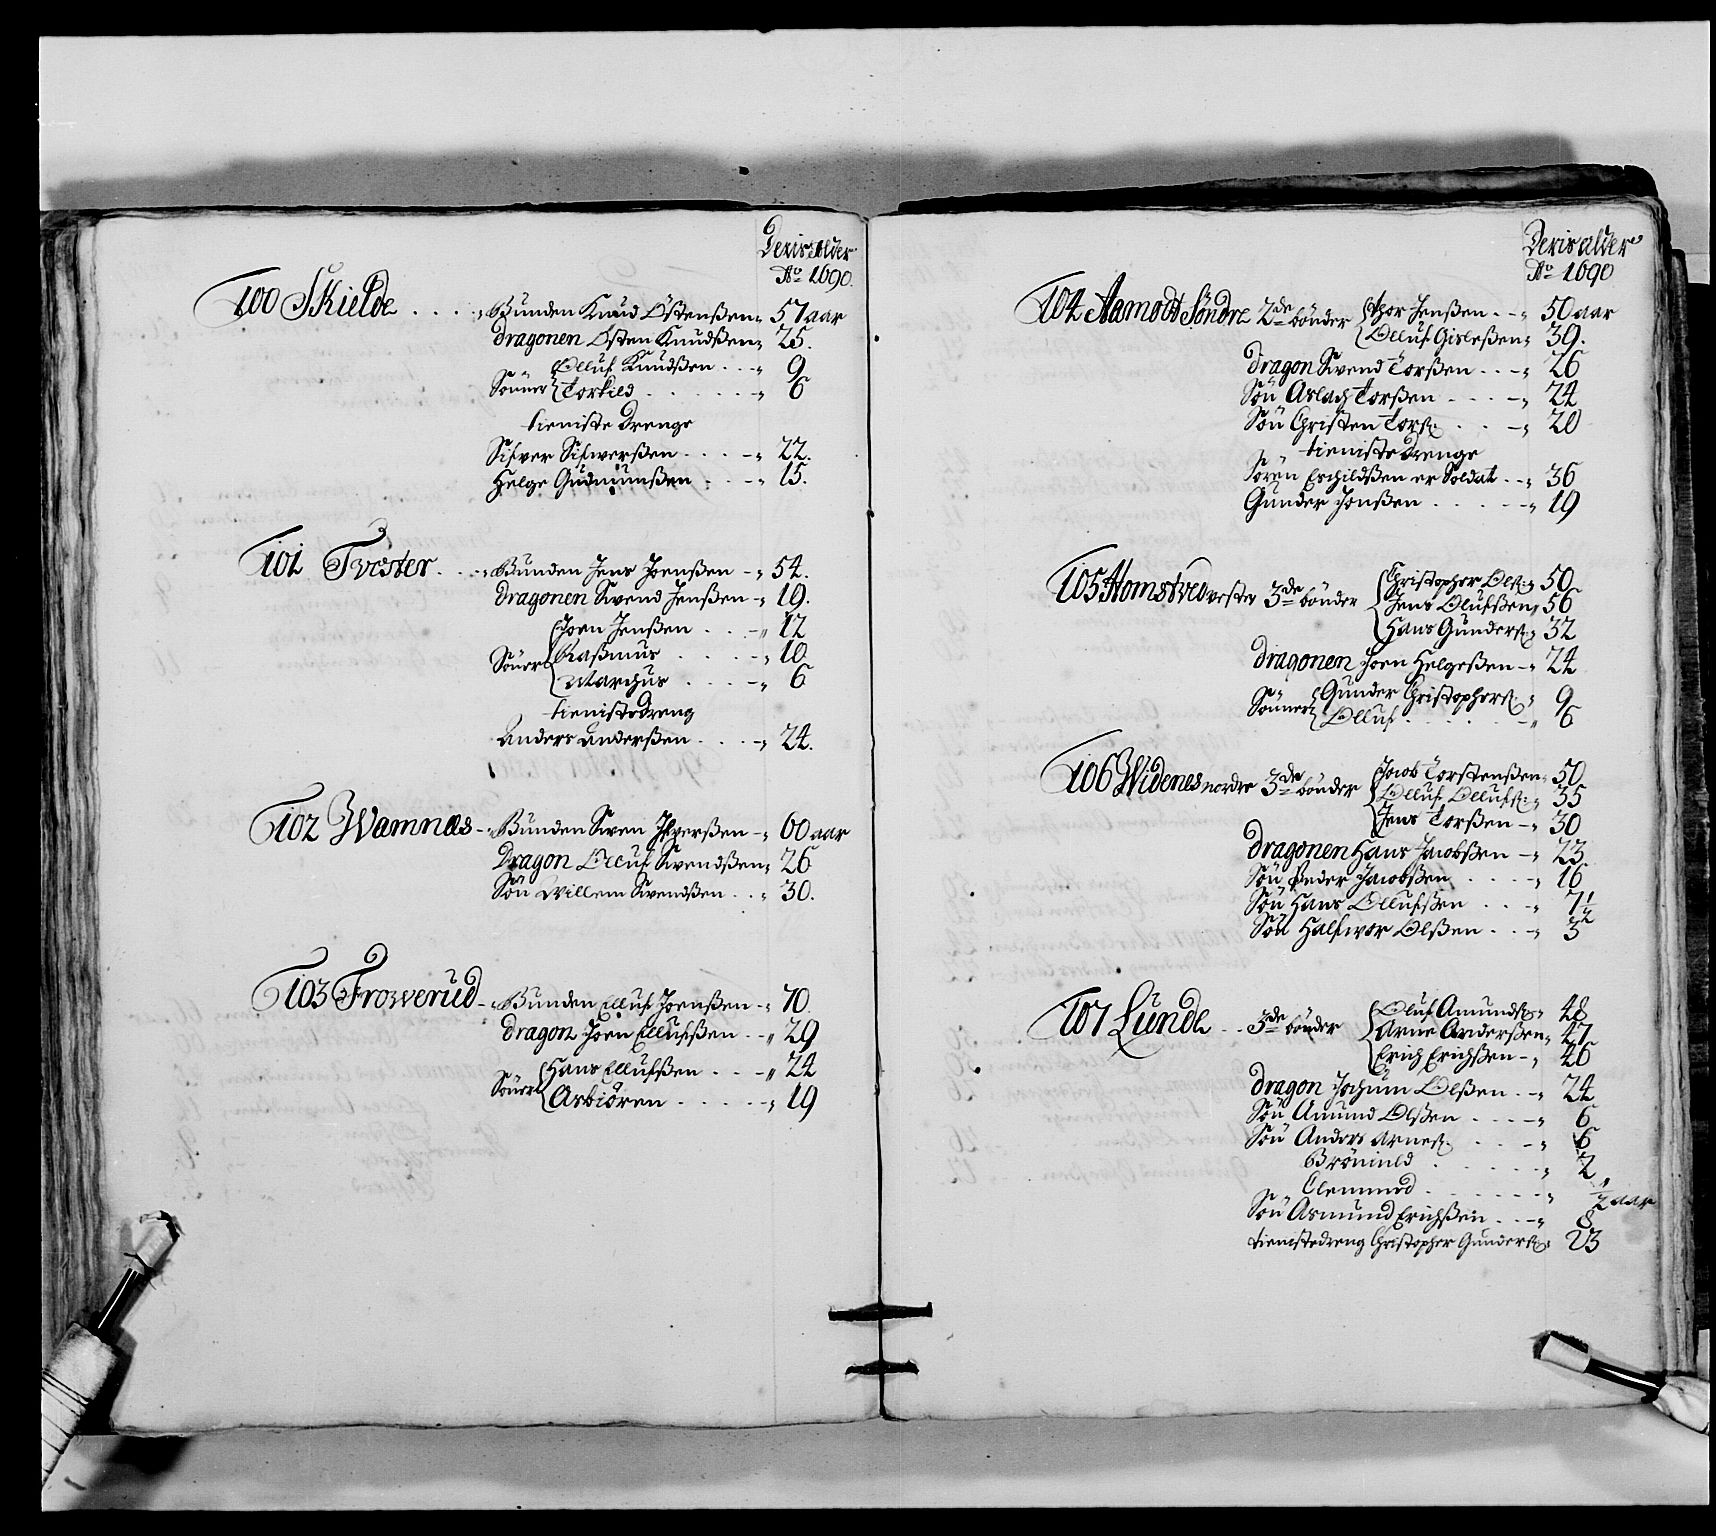 Deris alder
Ao 1690.
100 Skielde . . . . Bunden Knud Östenßen 57 aar
dragonen Östen Knudßen 25.
Olluf Knudßen . . . 9
Sönner Torkild . . . . . . 6
tieniste Drenge
Sifver Sifwerßen . . . . 22.
Helge Gudmunßen . . . 15.
101 Tveter . . . Bunden Jens Joenßen - 54.
dragonen Swend Jenßen - 19.
Joen Jenßen . . . 12
Söner Raßmus . . . . 10
Marchus . . . . 6
tienistedreng
Anders Anderßen . . . 24.
102 Wamnæs - Bunden Swen Jfwerßen - 60 aar
Dragon Olluf Swendßen 26
Sön Willem Swendßen . . 30.
103 Frowerud - Bunden Elluf Joenßen - 70.
dragon Joen Ellufßen . . 29
Hans Ellufßen . . . 24
Söner Asbiören . . . . . 19
Deris alder
Ao 1690
104 Aamodt Söndre 2de bönder Thor Jenßen . . 50 aar
Olluf Gisleßen 39.
dragon Swend Torßen . . . 26
Sön Aslach Torßen . . . . 24
Sön Christen Torß: . . . 20
tieniste Drenge
Sören Eschildßen er Soldat . . 36
Gunder Jonßen . . . . . 19
105 Homstved vester 3de bönder Christopher Olß: 50
Jens Olufßen 56
Hans Gunderß: 32
dragonen Joen Helgeßen - 24
Sönner Gunder Christopherß: 9
Olluf . . . . . . 6
106 Widenes nordre 3de bönder Jacob Torstenßen 50
Olluf Ollufß: 35
Jens Torßen - 30
dragonen Hans Jacobßen - 23
Sön Peder Jacobßen . . . . 16
Sön Hans Ollufßen . . . 7 1/2
Sön Halfwor Olßen . . . 3
107 Lunde . . 3de bönder Oluf Amundß: 48
Arne Anderßen 47
Erich Erichßen - 46
dragon Jochum Olßen . . 24
Sön Amund Olßen . . . . 6
Sön Anders Arneß: . . . 6
Bröniuld . . . . . . 2
Clemmed . . . . . . 1/2 aar
Sön Asmund Erichßen . . . 8
tienistedreng Christopher Gunderß: 23